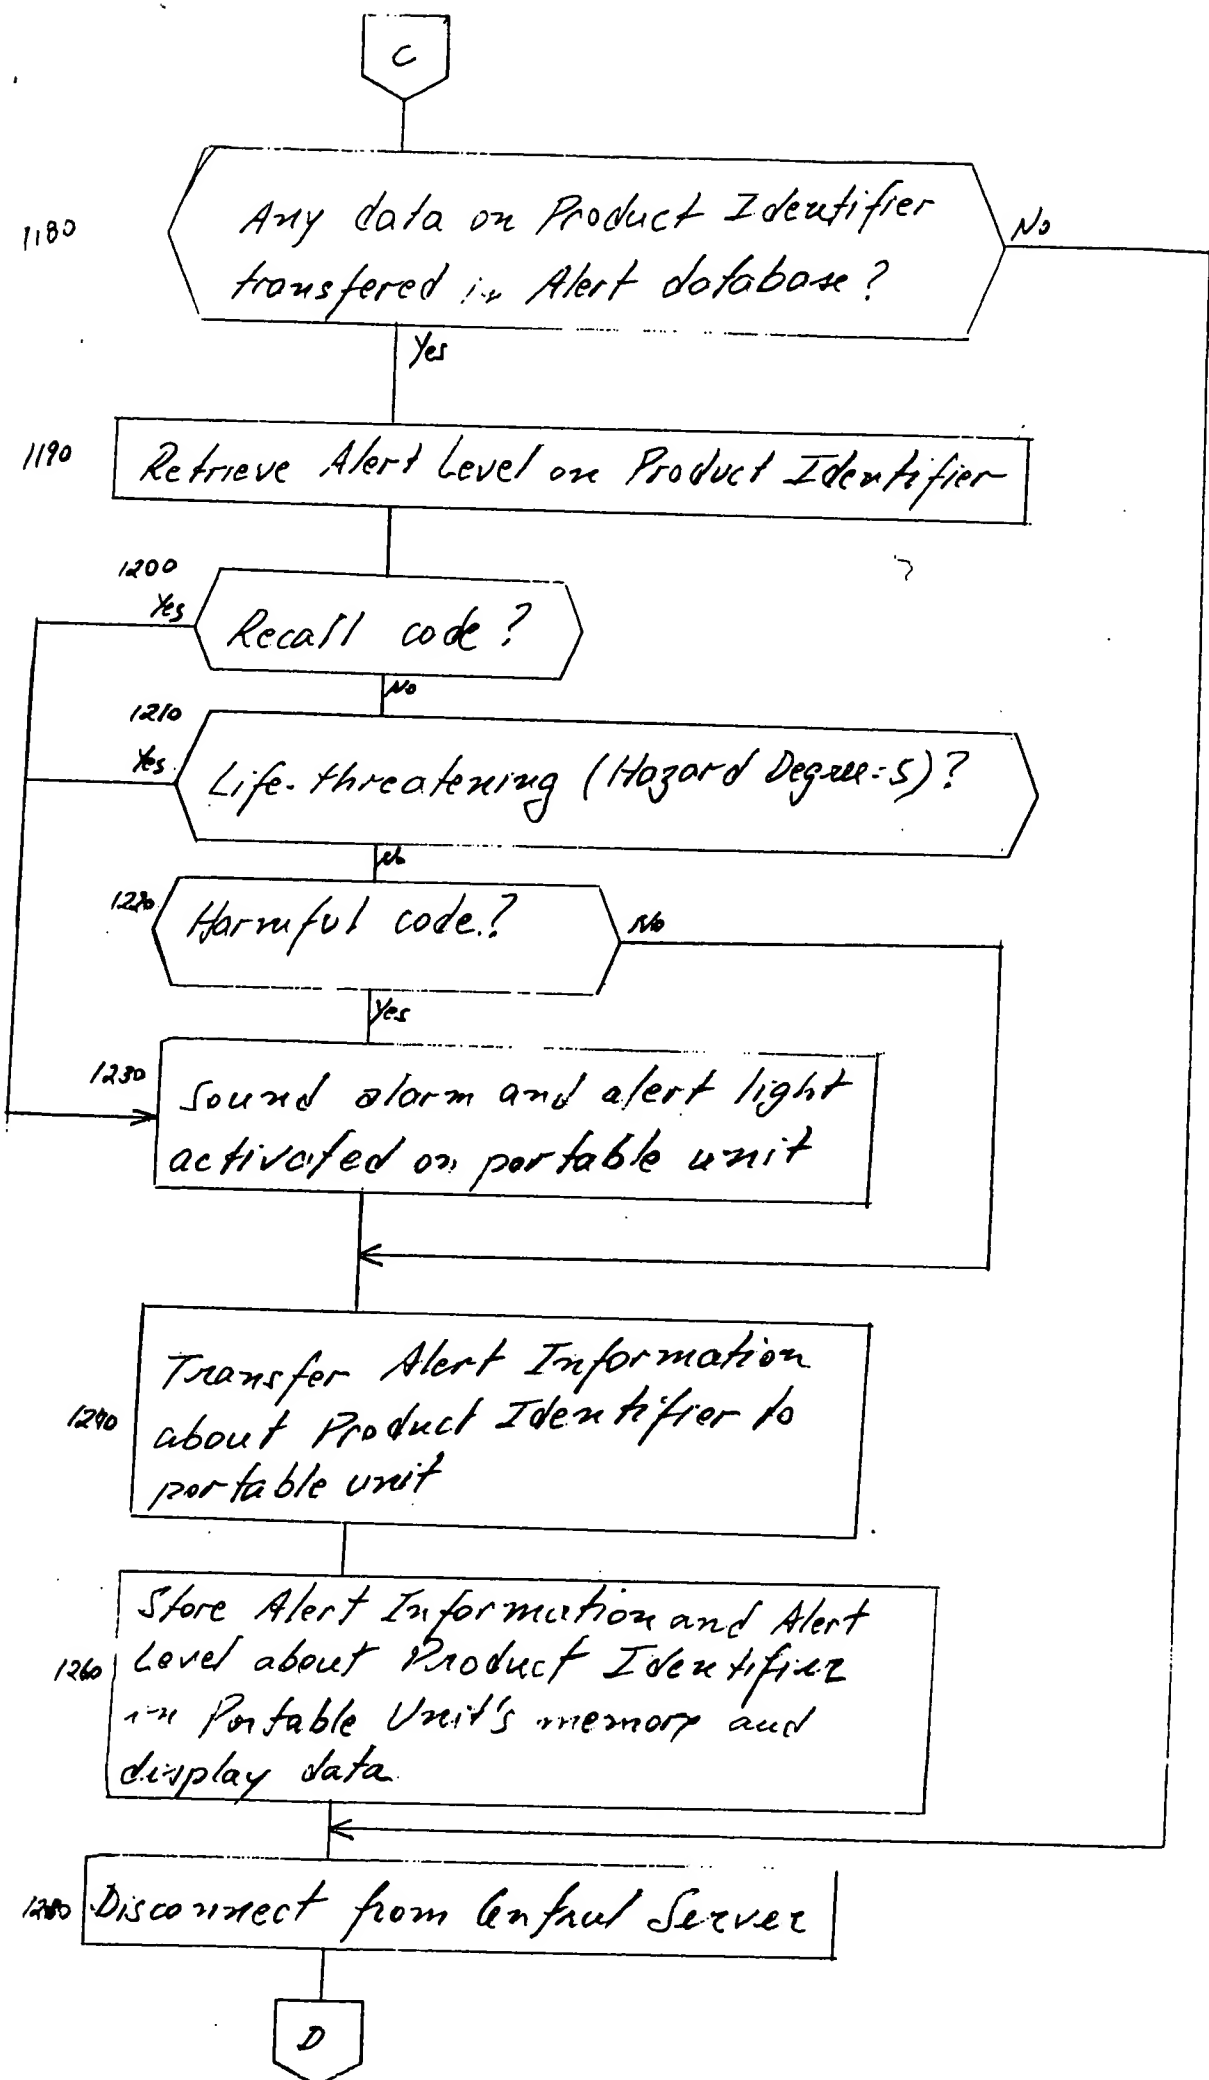 C
1180
Any data on Product Identifier
No
transfered in Alert database?
Yes
1190
Retrieve Alert Level on Product Identifier
1200
Yes
Recall code?
No
1210
Yes
Life-threatening (Hazard Degree=5)?
No
1220
Harmful code?
No
Yes
1230
Sound alarm and alert light
activated on portable unit
Transfer Alert Information
1240
about Product Identifier to
portable unit
Store Alert Information and Alert
1260
Level about Product Identifier
in Portable Unit's memory and
display data
1280
Disconnect from Central Server
D